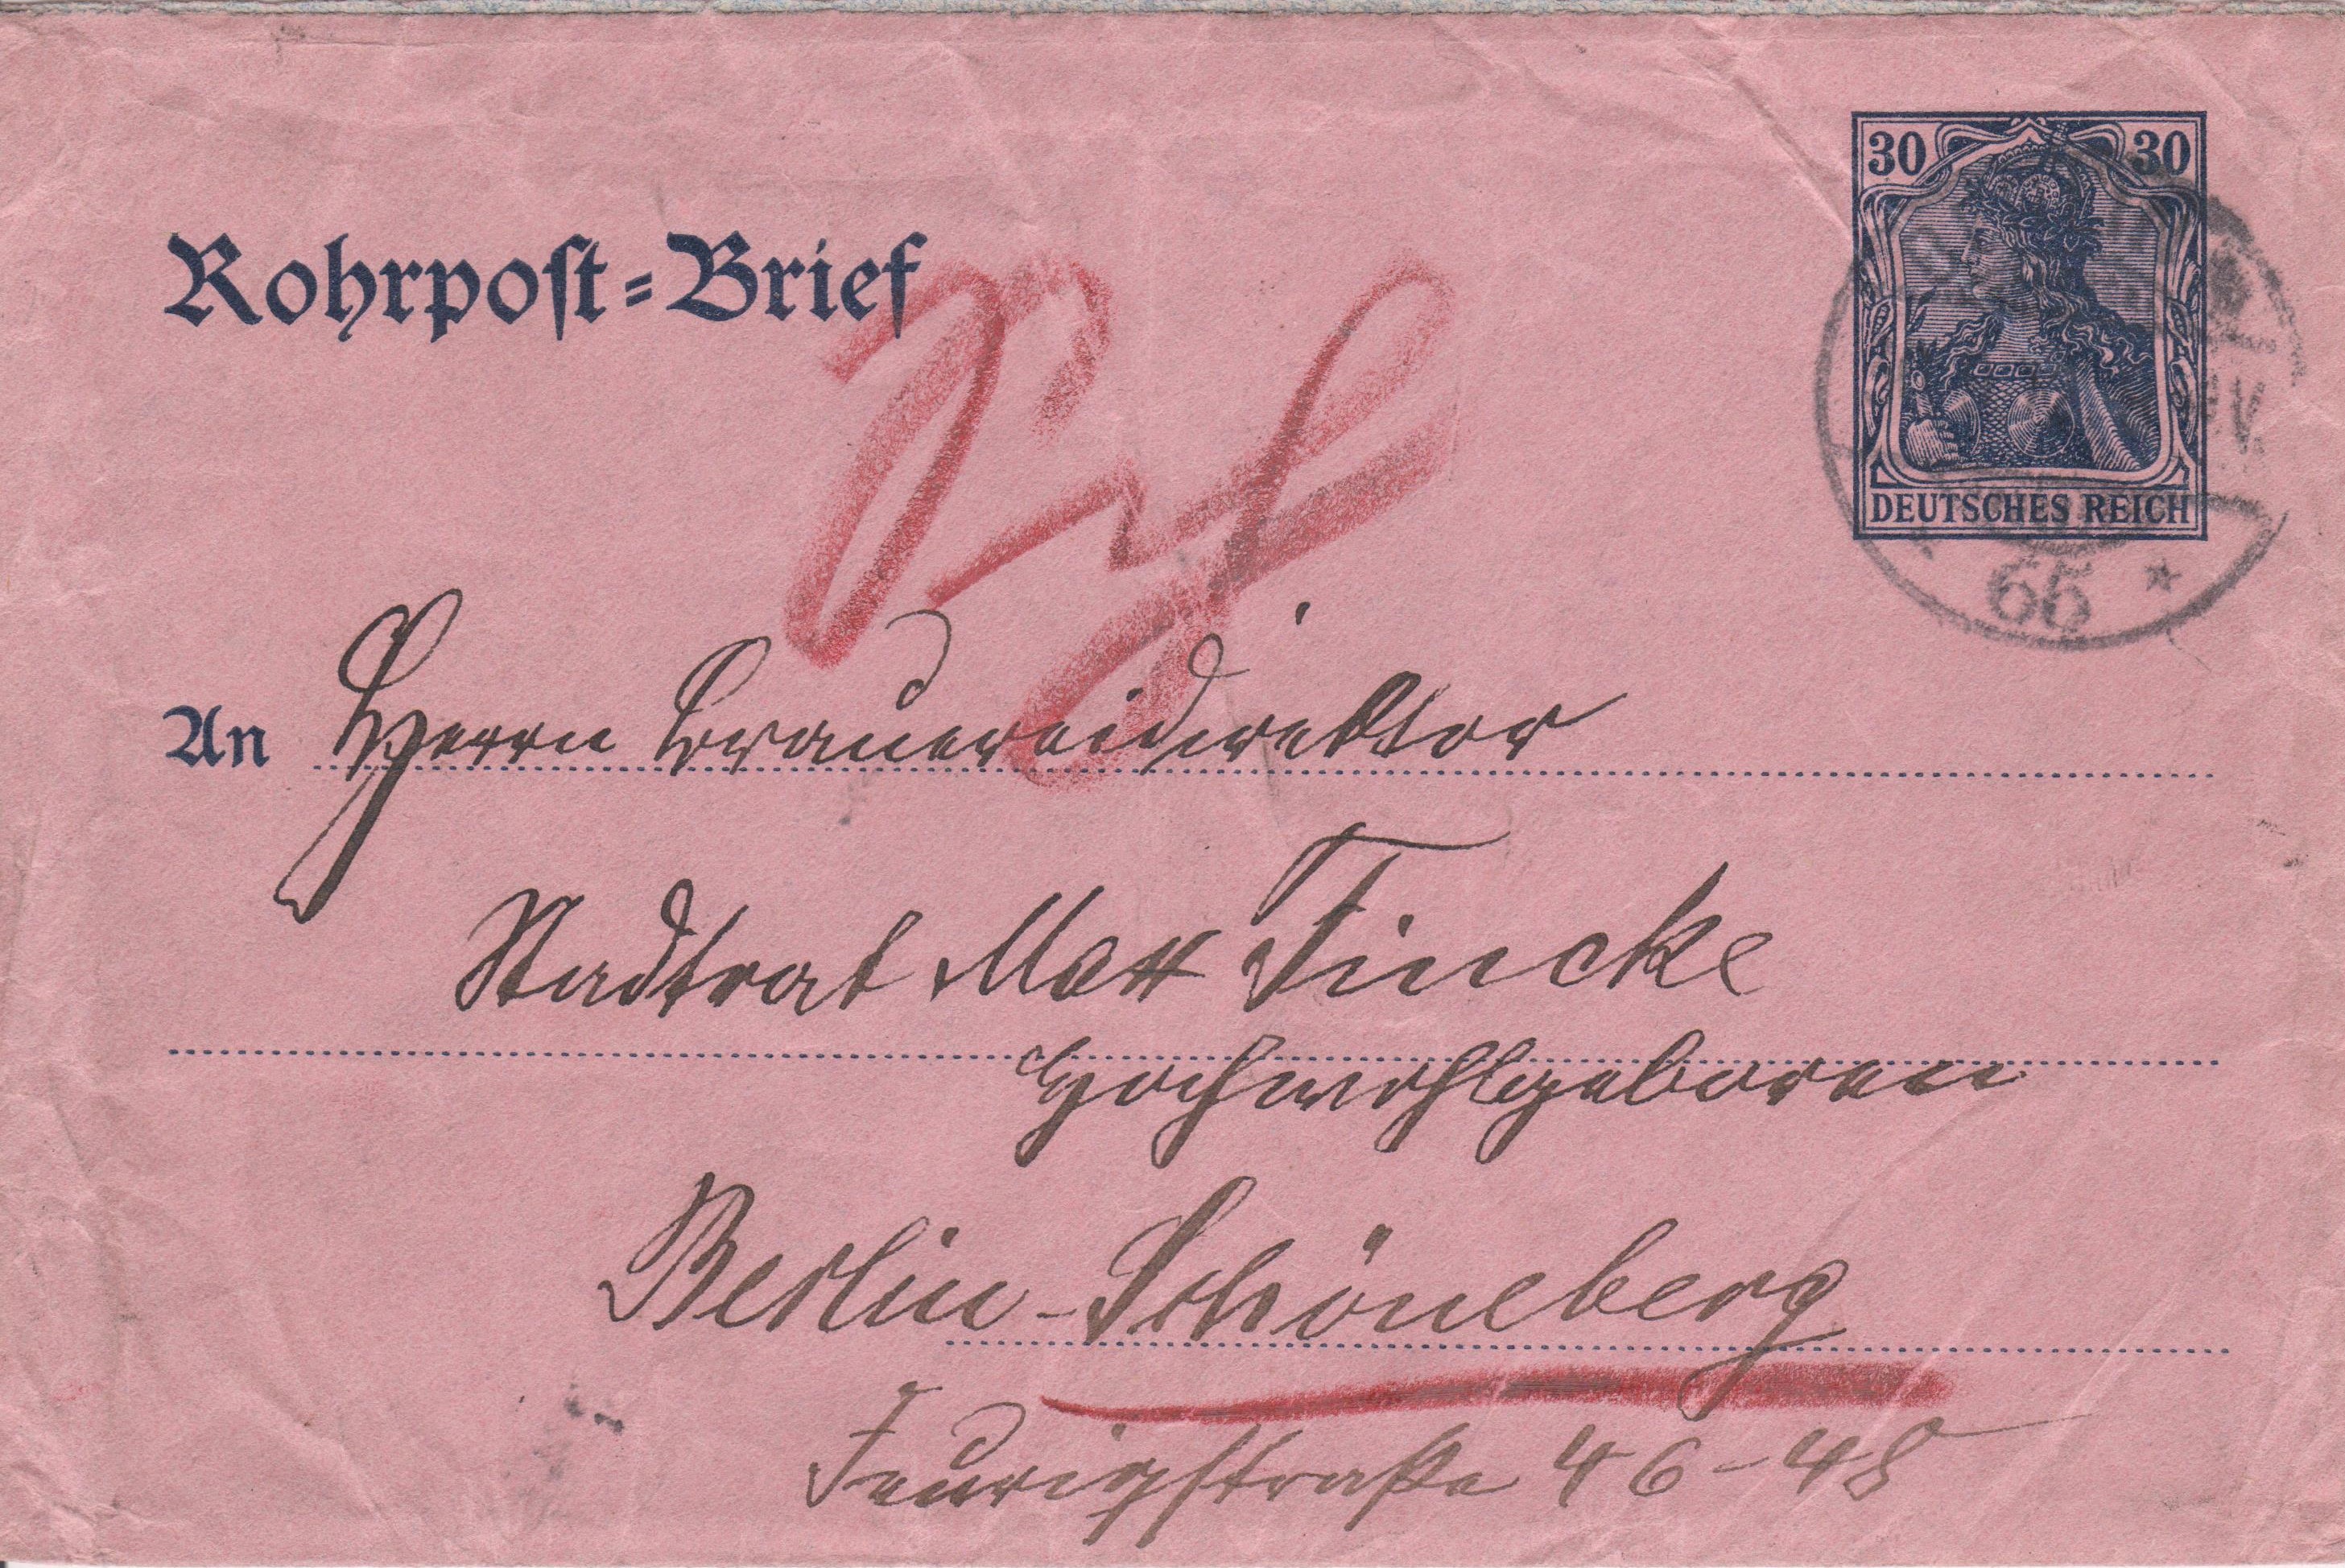 30 30
Rohrpost-Brief
DEUTSCHES REICH
65 *
An Herrn Brauereidirektor
Stadtrat Max Fincke
Hochwohlgeboren
Berlin-Schöneberg
Feurigstraße 46-48